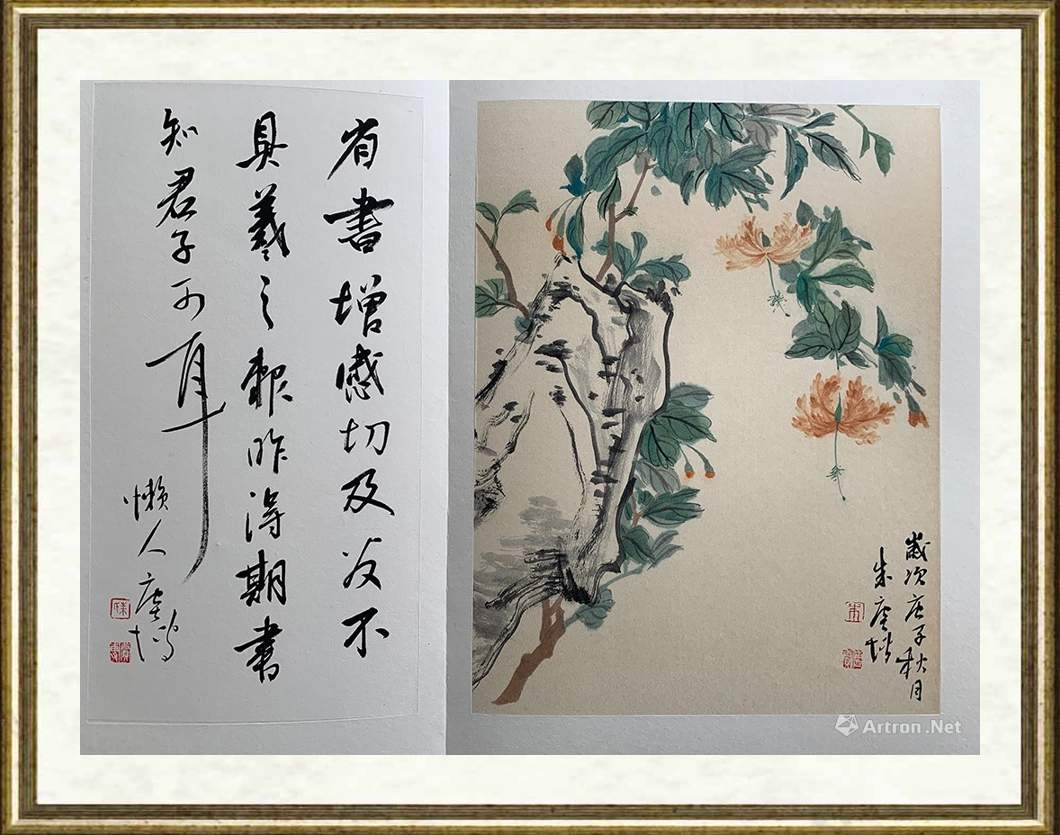 省書增感切及不
具羲之報昨得期書
知君子可耳
懶人
歲次庚子秋月
朱
Artron.Net